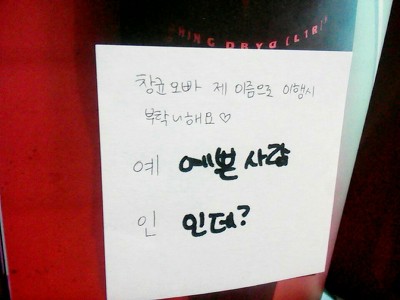 창균오빠 제 이름으로 이행시
부탁ㄴ해요♡
예 예쁜 사람
인 인데?